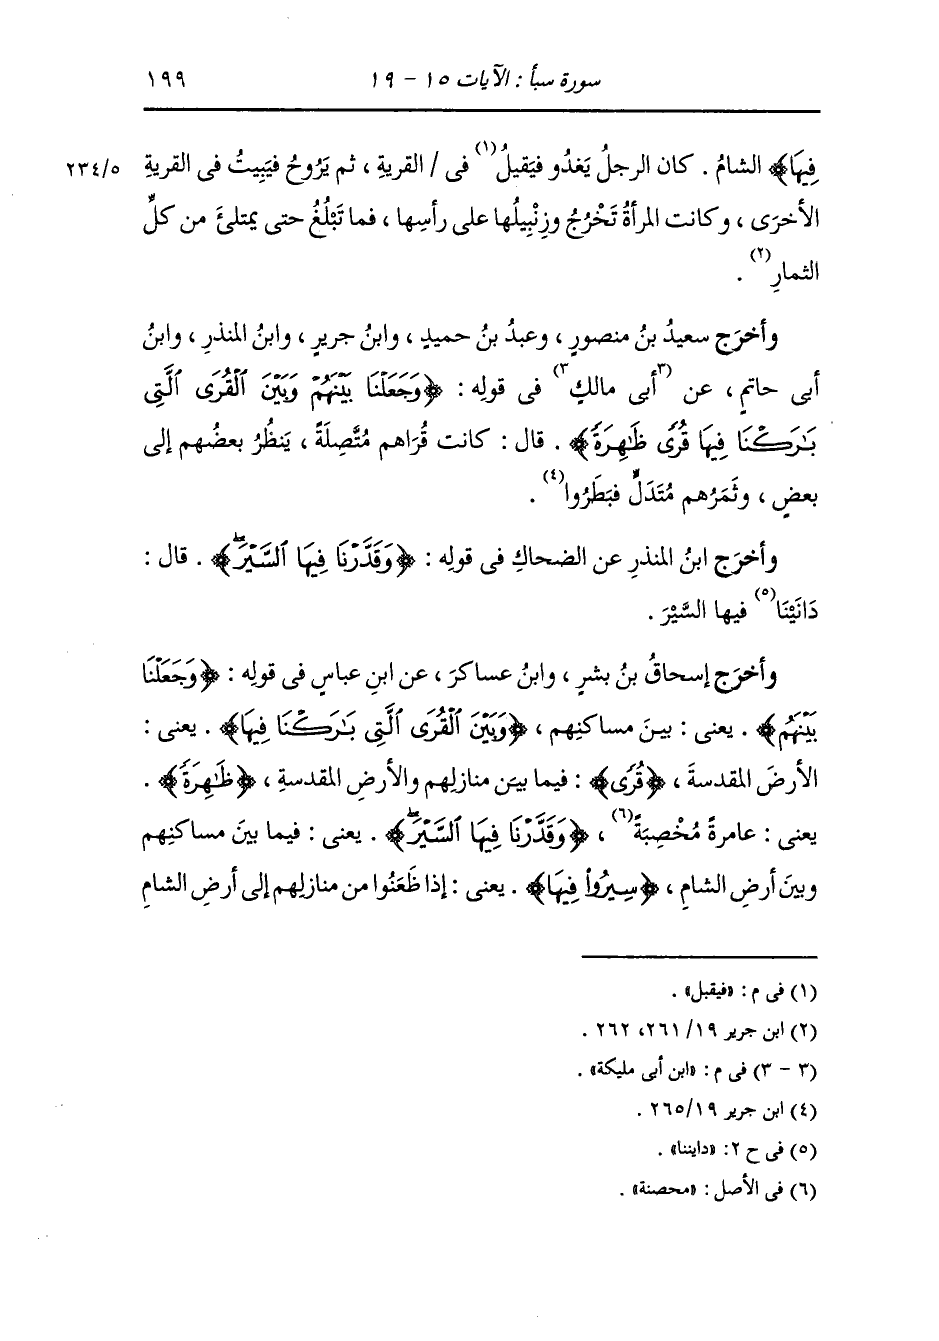 سورة سبأ : الآيات ١٥ - ١٩ ١٩٩
فِيهَا﴾ الشامُ . كان الرجلُ يَغدُو فيَقيلُ(١) فى / القريةِ ، ثم يَرُوحُ فيَبِيتُ فى القريةِ ٢٣٤/٥
الأخرَى ، وكانت المرأةُ تَخْرُجُ وزِنْبِيلُها على رأسِها ، فما تَبْلُغُ حتى يمتلئَ من كلِّ
الثمارِ(٢) .
وأخرَج سعيدُ بنُ منصورٍ ، وعبدُ بنُ حميدٍ ، وابنُ جريرٍ ، وابنُ المنذرِ ، وابنُ
أبى حاتمٍ ، عن (٣أبى مالكٍ٣) فى قولِه : ﴿وَجَعَلْنَا بَيْنَهُمْ وَبَيْنَ ٱلْقُرَى ٱلَّتِى
بَٰرَكْنَا فِيهَا قُرًى ظَٰهِرَةً﴾ . قال : كانت قُراهم مُتَّصِلَةً ، يَنظُرُ بعضُهم إلى
بعضٍ ، وثَمَرُهم مُتَدَلٍّ فبَطَرُوا(٤) .
وأخرَج ابنُ المنذرِ عن الضحاكِ فى قولِه : ﴿وَقَدَّرْنَا فِيهَا ٱلسَّيْرَۖ﴾ . قال :
دَانَيْنَا(٥) فيها السَّيْرَ .
وأخرَج إسحاقُ بنُ بشرٍ ، وابنُ عساكرَ ، عن ابنِ عباسٍ فى قولِه : ﴿وَجَعَلْنَا
بَيْنَهُمْ﴾ . يعنى : بينَ مساكنِهم ، ﴿وَبَيْنَ ٱلْقُرَى ٱلَّتِى بَٰرَكْنَا فِيهَا﴾ . يعنى :
الأرضَ المقدسةَ ، ﴿قُرًى﴾ : فيما بينَ منازلِهم والأرضِ المقدسةِ ، ﴿ظَٰهِرَةً﴾ .
يعنى : عامرةً مُخْصِبَةً(٦) ، ﴿وَقَدَّرْنَا فِيهَا ٱلسَّيْرَۖ﴾ . يعنى : فيما بينَ مساكنِهم
وبينَ أرضِ الشامِ ، ﴿سِيرُوا۟ فِيهَا﴾ . يعنى : إذا ظَعَنُوا من منازلِهم إلى أرضِ الشامِ
(١) فى م : «فيقبل» .
(٢) ابن جرير ١٩/ ٢٦١، ٢٦٢ .
(٣ - ٣) فى م : «ابن أبى مليكة» .
(٤) ابن جرير ٢٦٥/١٩ .
(٥) فى ح ٢: «دايننا» .
(٦) فى الأصل : «محصنة» .